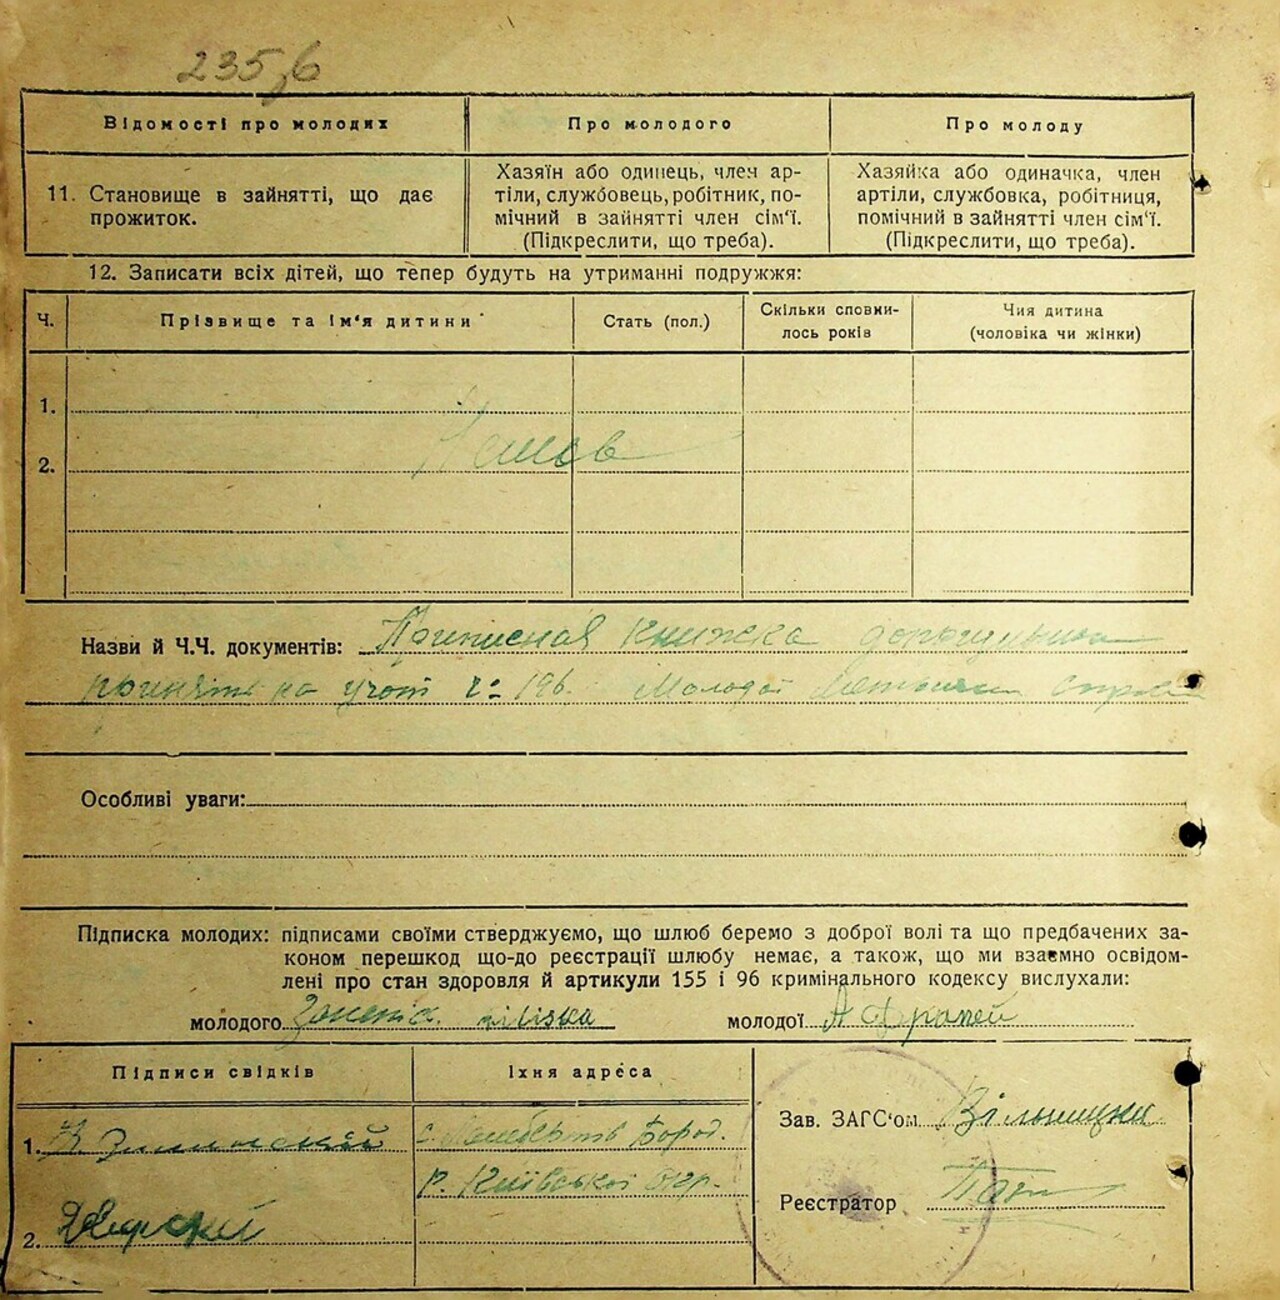 235,6
Відомості про молодих
Про молодого
Про молоду
11. Становище в зайнятті, що дає
прожиток.
Хазяїн або одинець, член ар-
тіли, службовець, робітник, по-
мічний в зайнятті член сім‘ї.
(Підкреслити, що треба).
Хазяйка або одиначка, член
артіли, службовка, робітниця,
помічний в зайнятті член сім‘ї.
(Підкреслити, що треба).
12. Записати всіх дітей, що тепер будуть на утриманні подружжя:
Ч.
Прізвище та ім‘я дитини
Стать (пол.)
Скільки сповни-
лось років
Чия дитина
(чоловіка чи жінки)
1.
2.
Назви й Ч.Ч. документів: Приписная книжка
на 196. Молодої
Особливі уваги:
Підписка молодих: підписами своїми стверджуємо, що шлюб беремо з доброї волі та що предбачених за-
коном перешкод що-до реєстрації шлюбу немає, а також, що ми взаємно освідом-
лені про стан здоровля й артикули 155 і 96 кримінального кодексу вислухали:
молодого
молодої
Підписи свідків
Їхня адреса
1.
Бород.
р. Київської
2.
Зав. ЗАГС‘ом
Реєстратор